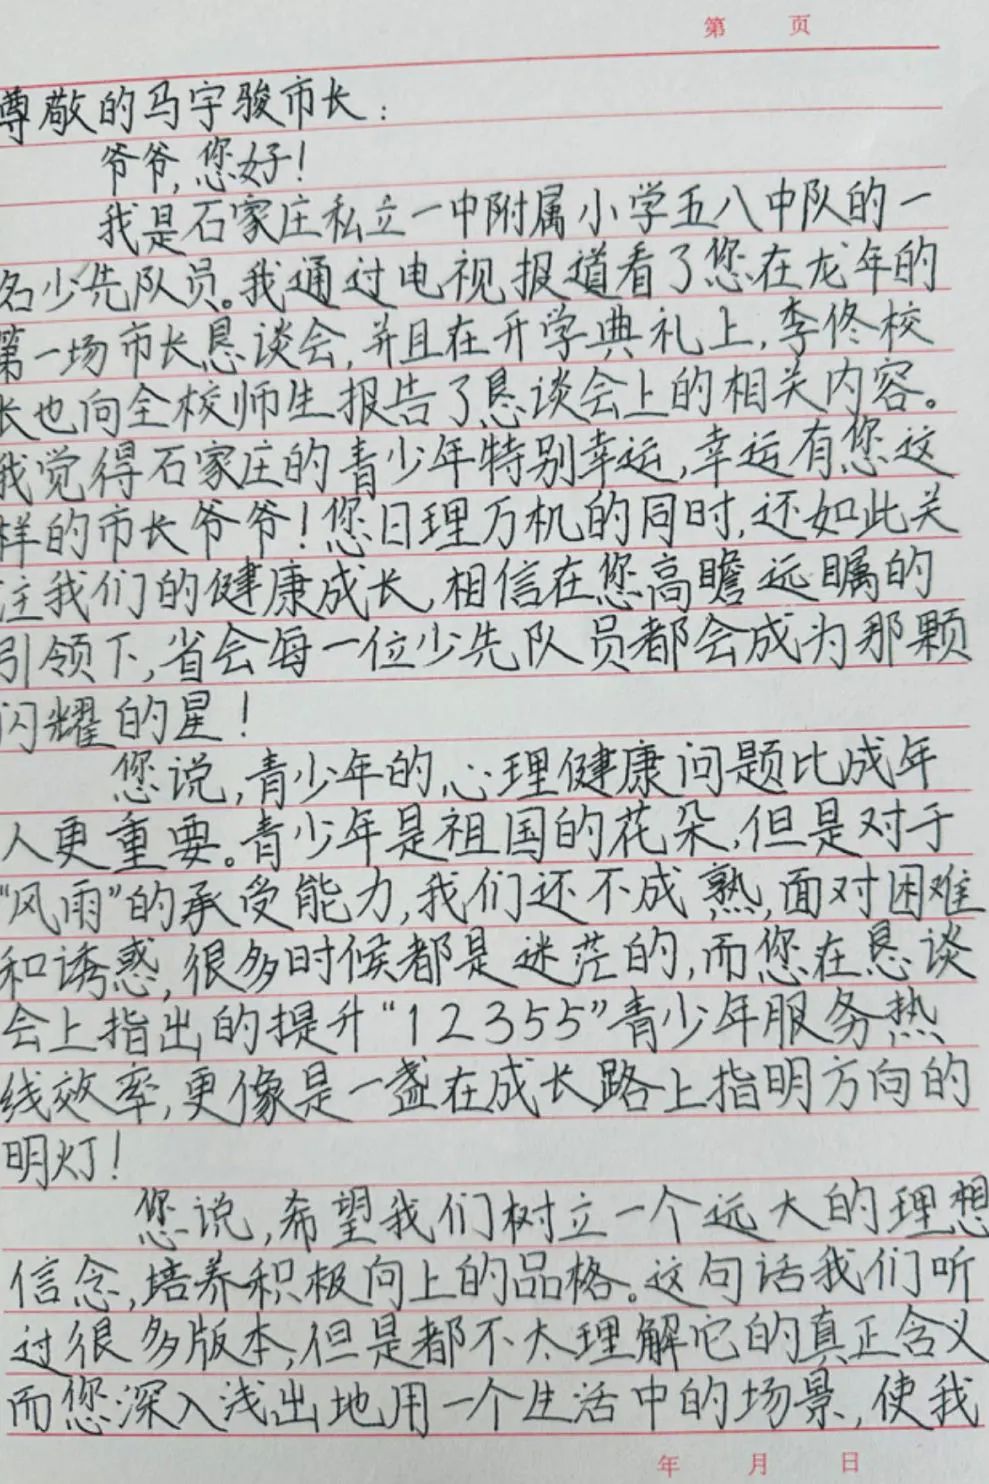 第 页
尊敬的马宇骏市长：
爷爷,您好!
我是石家庄私立一中附属小学五八中队的一
名少先队员。我通过电视报道看了您在龙年的
第一场市长恳谈会,并且在开学典礼上,李佟校
长也向全校师生报告了恳谈会上的相关内容。
我觉得石家庄的青少年特别幸运,幸运有您这
样的市长爷爷!您日理万机的同时,还如此关
注我们的健康成长,相信在您高瞻远瞩的
引领下,省会每一位少先队员都会成为那颗
闪耀的星!
您说,青少年的心理健康问题比成年
人更重要。青少年是祖国的花朵,但是对于
“风雨”的承受能力,我们还不成熟,面对困难
和诱惑,很多时候都是迷茫的,而您在恳谈
会上指出的提升“12355”青少年服务热
线效率,更像是一盏在成长路上指明方向的
明灯!
您说,希望我们树立一个远大的理想
信念,培养积极向上的品格。这句话我们听
过很多版本,但是都不太理解它的真正含义
而您深入浅出地用一个生活中的场景,使我
年 月 日